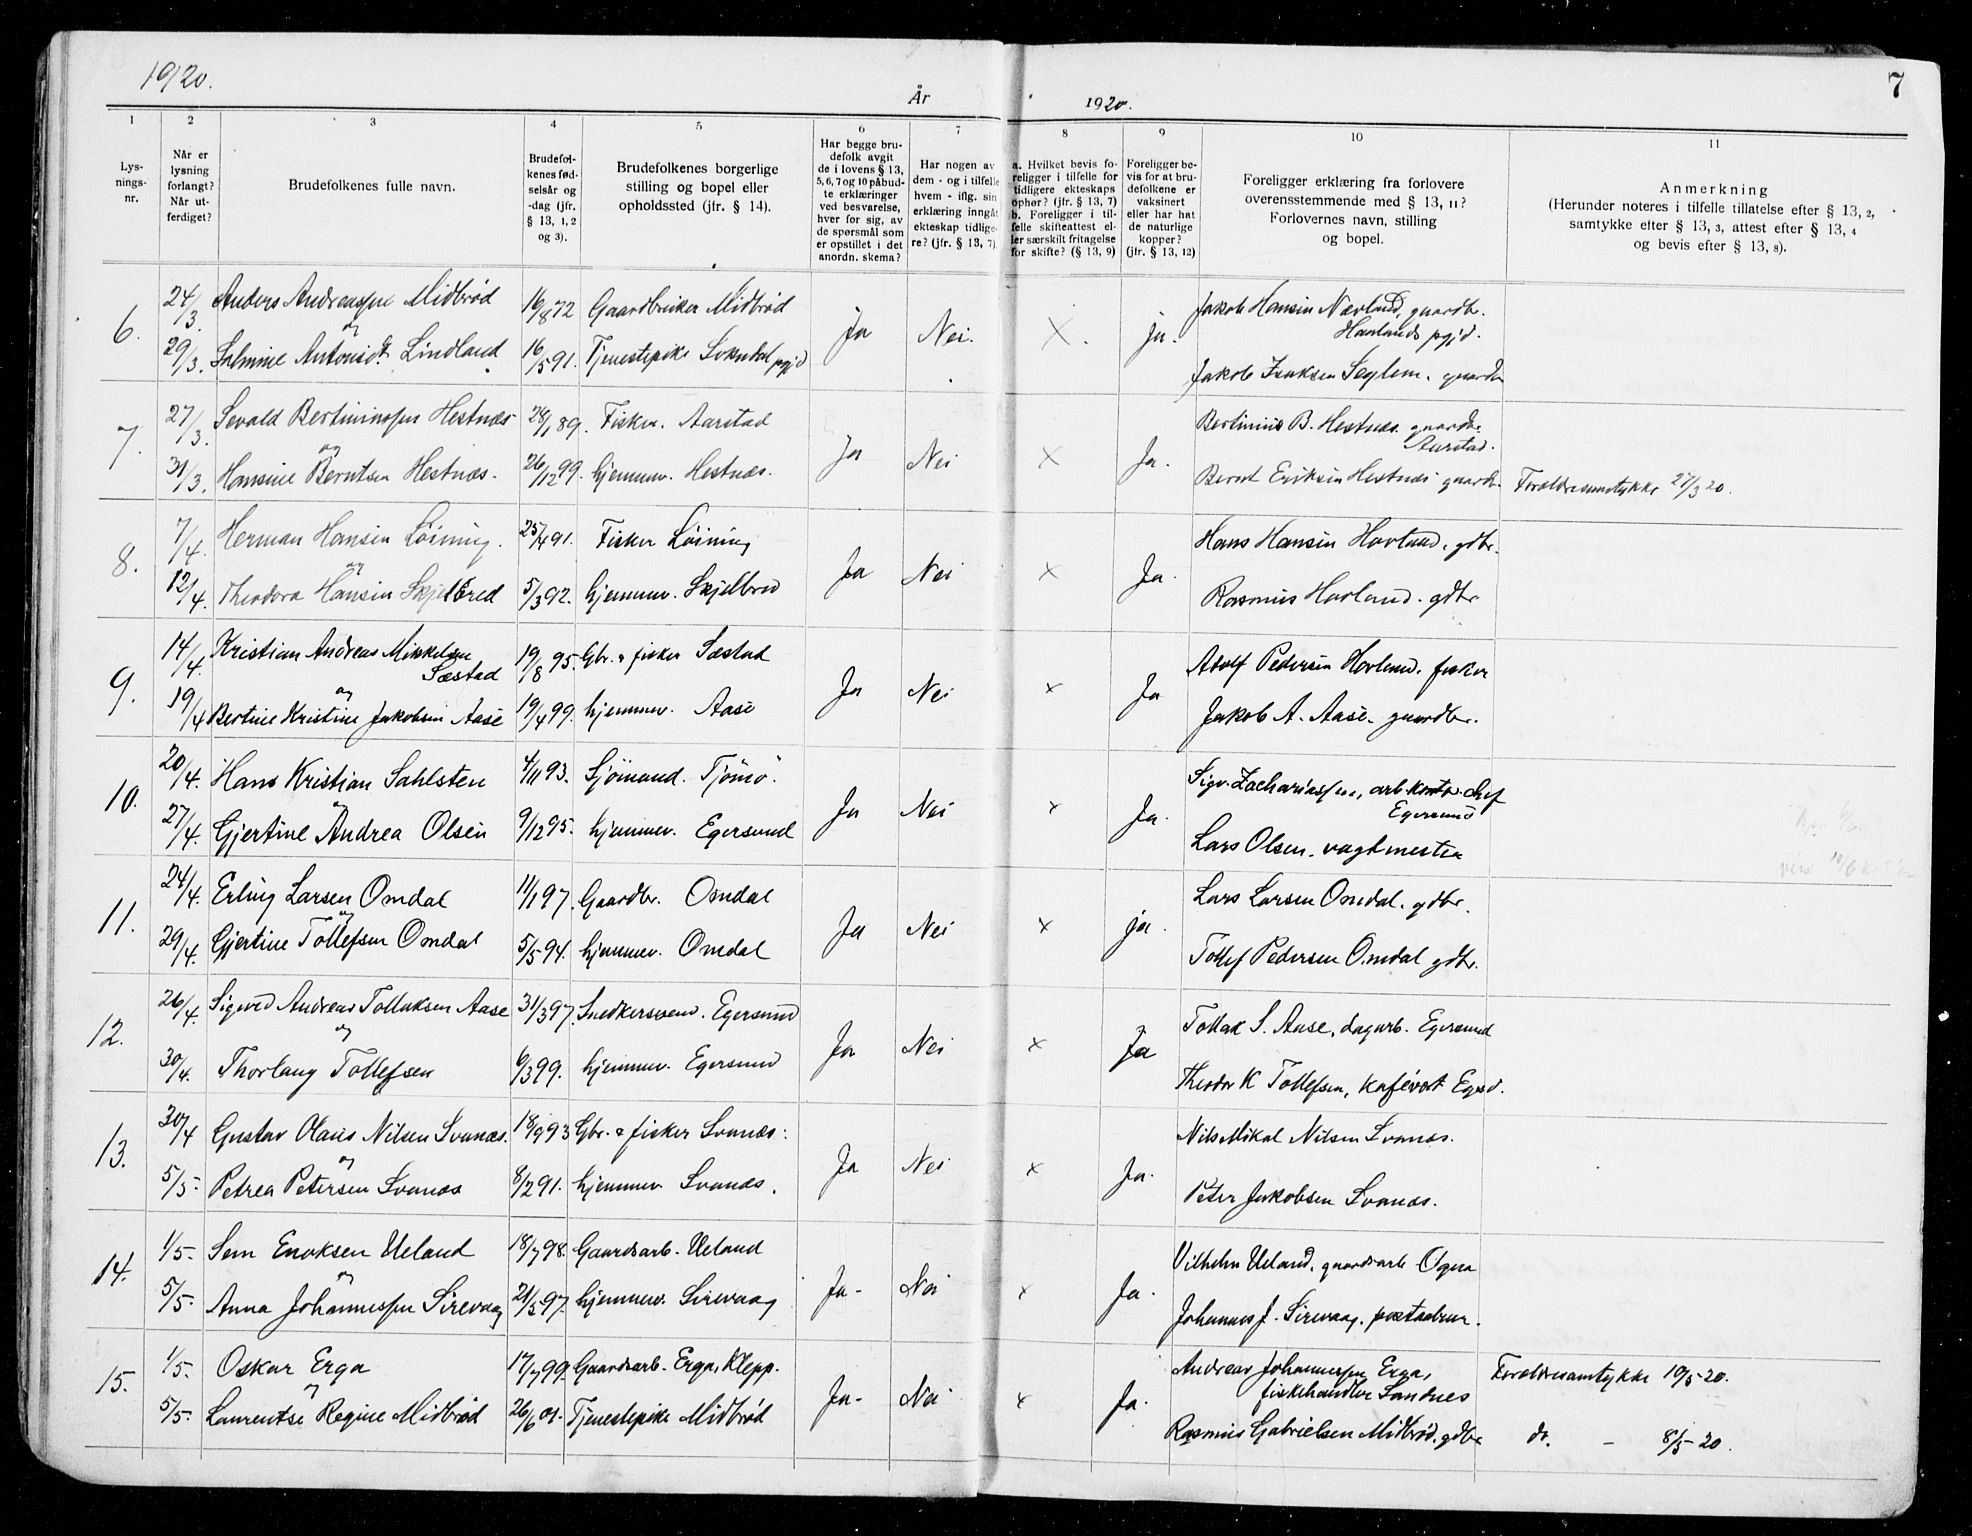 1920.
År
1920.
7
1
2
3
4
5
6
7
8
9
10
11
Lys-
nings-
nr.
Når er
lysning
forlangt?
Når ut-
ferdiget?
Brudefolkenes fulle navn.
Brudefol-
kenes fød-
selsår og
-dag (jfr.
§ 13, 1, 2
og 3).
Brudefolkenes borgerlige
stilling og bopel eller
opholdssted (jfr. § 14).
Har begge bru-
defolk avgit
de i lovens § 13,
5, 6, 7 og 10 påbud-
te erklæringer
ved besvarelse,
hver for sig, av
de spørsmål som
er opstillet i det
anordn. skema?
Har nogen av
dem - og i tilfelle
hvem - iflg. sin
erklæring inngåt
ekteskap tidlige-
re? (jfr. § 13, 7).
a. Hvilket bevis fo-
religger i tilfelle for
tidligere ekteskaps
ophør? (jfr. § 13, 7)
b. Foreligger i til-
felle skifteattest el-
ler særskilt fritagelse
for skifte? (§ 13, 9)
Foreligger be-
vis for at bru-
defolkene er
vaksinert
eller har hat
de naturlige
kopper?
(jfr. § 13, 12)
Foreligger erklæring fra forlovere
overensstemmende med § 13, 11?
Forlovernes navn, stilling
og bopel.
Anmerkning
(Herunder noteres i tilfelle tillatelse efter § 13, 2,
samtykke efter § 13, 3, attest efter § 13, 4
og bevis efter § 13, 8).
6.
24/3. Anders Andreassen Midbrød 16/8 72 Gaardbruker Midbrød
og
29/3. Salmine Antonisdt Lindland 16/5 91. Tjenestepike Sokndal pgjd
Ja Nei. X. ja.
Jakob Hansen Nævland, gaardbr.
Havlands pgjd.
Jakob Isaksen Seglem. gaardbr
7.
27/3. Sevald Bertiniussen Hestnæs 28/1 89. Fisker. Aarstad
og
31/3. Hansine Berntsen Hestnæs. 26/12 99. hjemmev. Hestnæs.
Ja Nei X Ja.
Bertinius B. Hestnæs. gaardbr.
Aarstad.
Bernt Eriksen Hestnæs gaardbr. Forældresamtykke 27/3 20.
8.
7/4. Herman Hansen Löining. 25/4 91. Fisker Löining
og
12/4. Theodora Hansen Skjelbred 5/3 92. hjemmev. Skjelbred
Ja Nei X Ja.
Hans Hansen Hovland. gdbr.
Rasmus Hovland. gdbr
9.
14/4. Kristian Andreas Mikkelsen
Sæstad 19/8 95. Gbr. & fisker Sæstad
og
19/4 Bertine Kristine Jakobsen Aase 19/4 99. hjemmev. Aase
Ja Nei X Ja
Adolf Pedersen Hovland. fisker
Jakob A. Aase. gaardbr.
10.
20/4. Hans Kristian Sahlsten 4/11 93. Sjömand. Tjömö.
og
27/4. Gjertine Andrea Olsen 9/12 95. hjemmev. Egersund
Ja Nei X Ja.
Sigv. Zachariassen, arb.kontor.chef
Egersund
Lars Olsen. vagtmester
11.
24/4. Erling Larsen Omdal 11/1 97. Gaardbr. Omdal
og
29/4. Gjertine Tollefsen Omdal 5/5 94. hjemmev. Omdal
Ja Nei X ja.
Lars Larsen Omdal. gdbr.
Tollef Pedersen Omdal gdbr.
12.
26/4. Sigurd Andreas Tollaksen Aase 31/3 97. Snedkersvend. Egersund
og
30/4. Thorlaug Tollefsen 6/3 99. hjemmev. Egersund
Ja Nei X Ja
Tollak S. Aase, dagarb. Egersund
Theodor K Tollefsen, kafévert Egsd.
13.
30/4 Gustav Olaus Nilsen Svanæs. 18/9 93 Gbr. & fisker Svanæs.
og
5/5- Petrea Petersen Svanæs 8/2 91. hjemmev Svanæs.
Ja Nei X Ja.
Nils Mikal Nilsen Svanæs.
Peter Jakobsen Svanæs.
14.
1/5- Sem Enoksen Ueland 18/7 98. Gaardsarb. Ueland
og
5/5- Anna Johannessen Sirevaag 21/5 97. hjemmev. Sirevaag
Ja- Nei X Ja.
Vilhelm Ueland, gaardsarb Ogna
Johannes J. Sirevaag.
15.
1/5. Oskar Erga 17/7 99. Gaardsarb. Erga, Klepp.
og
5/5- Laurentse Regine Midbrød 26/6 01. Tjenestepike Midbrød
Ja- Nei X Ja.
Andreas Johannessen Erga,
fiskehandler Sandnes
Forældresamtykke 10/5-20.
Rasmus Gabrielsen Midbrød. gdbr do. - 8/5-20.